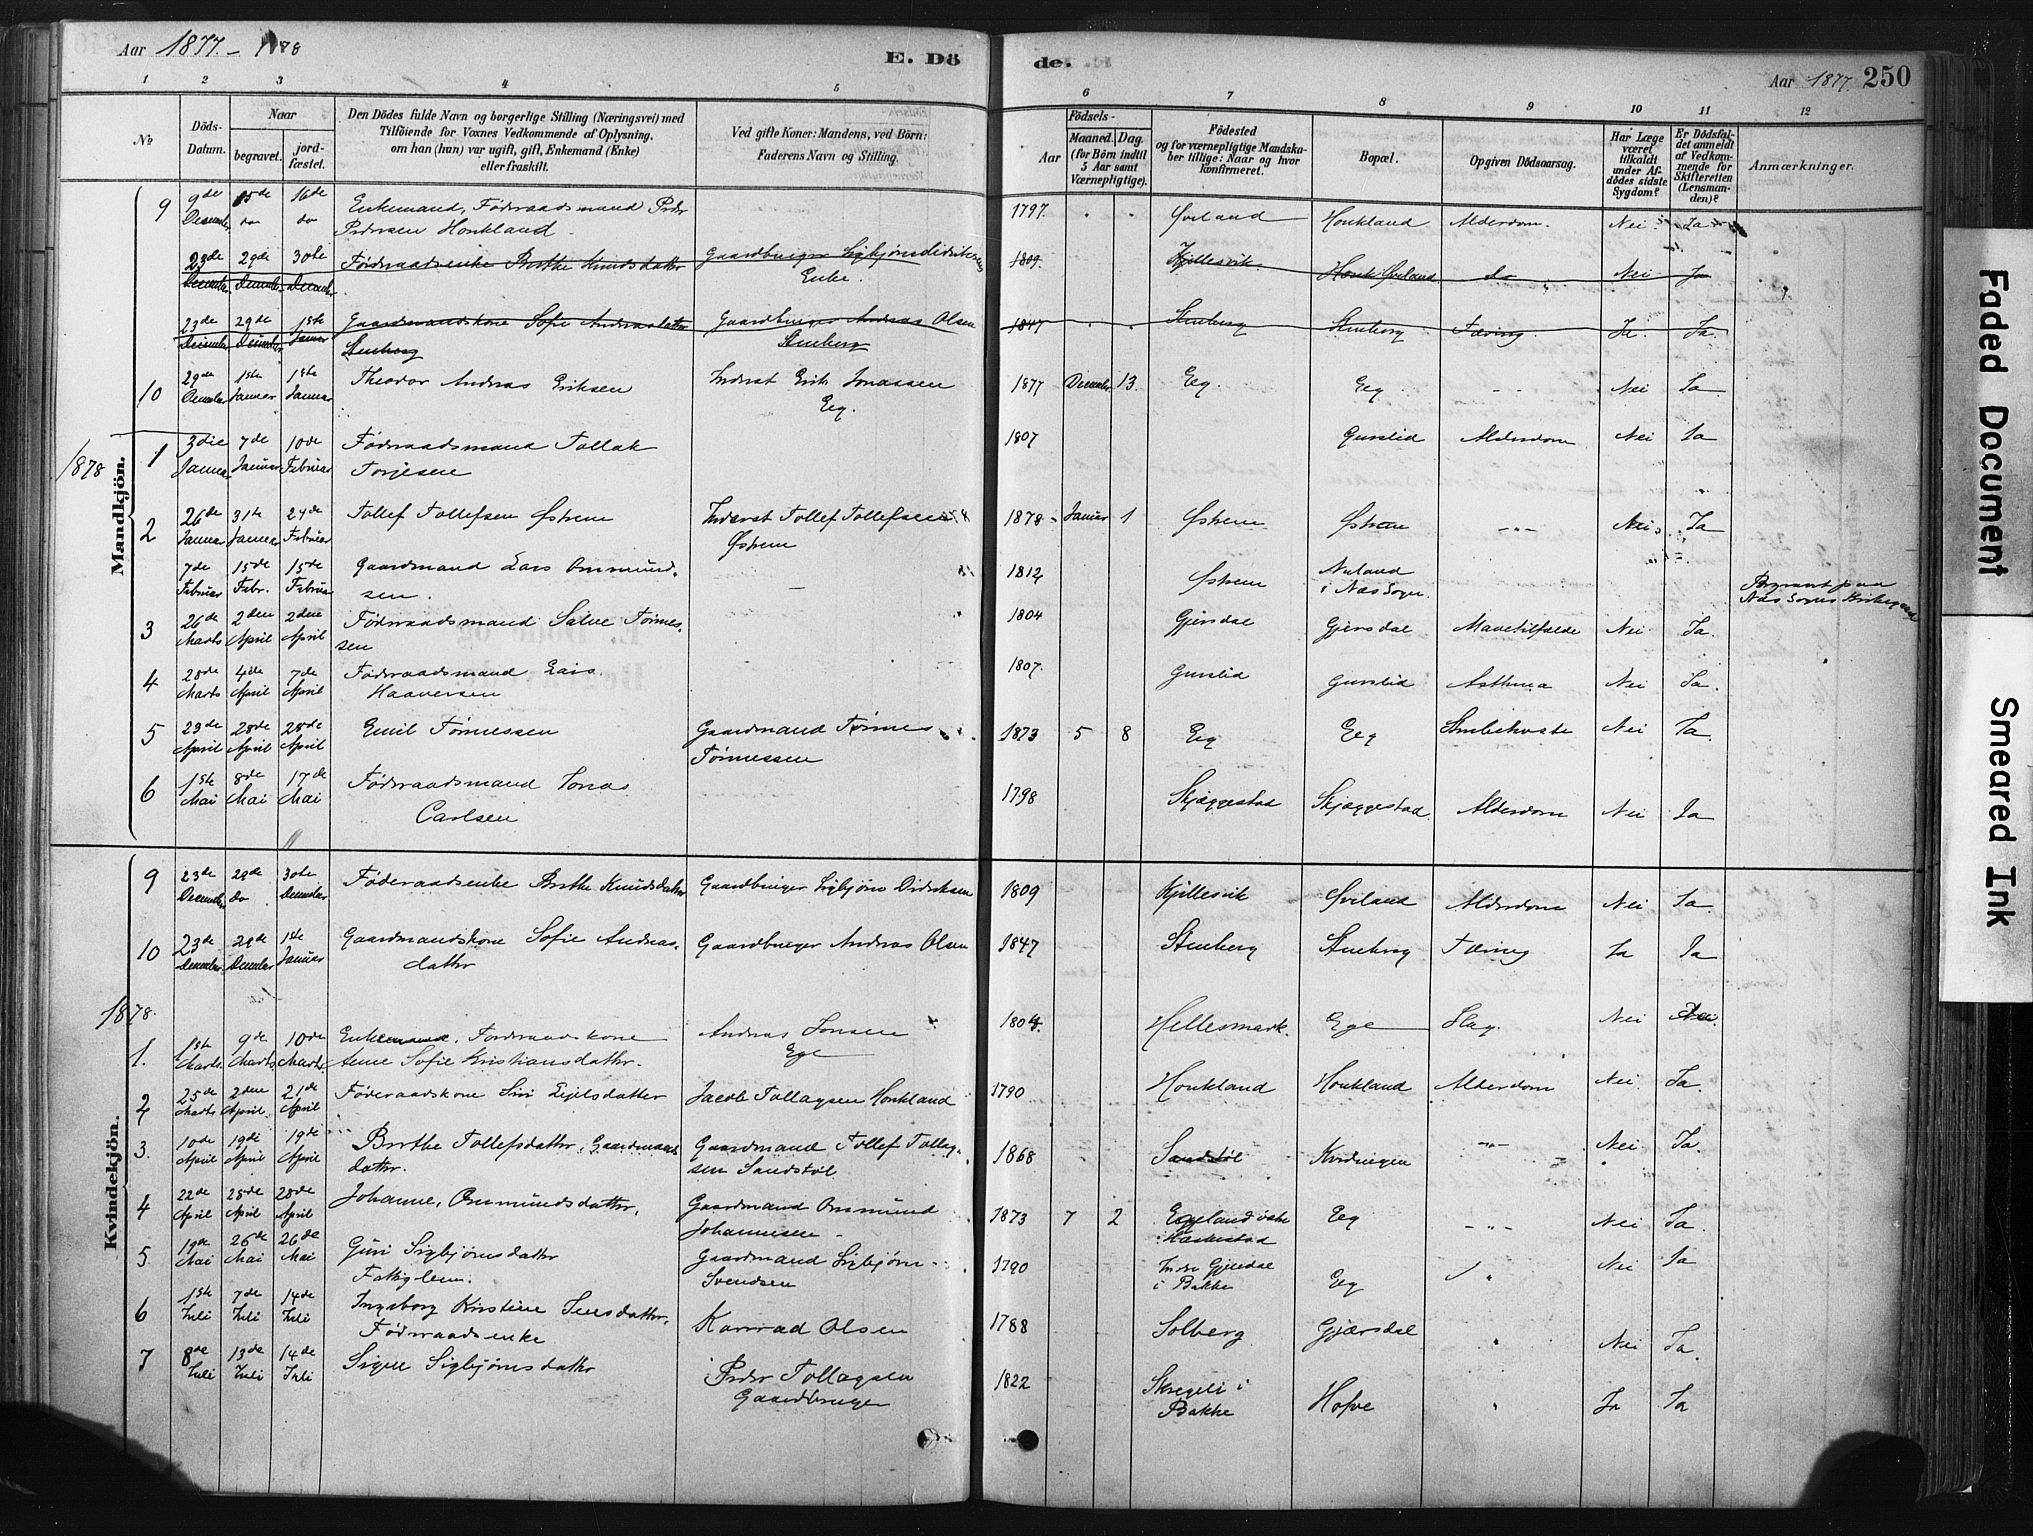 Aar 1877. - 1878
E. Dö
de.
Aar 1877 250
1 2 3 4 5 6 7 8 9 10 11 12
No
Döds-Datum.
Naar
begravet.
jord-fæstet.
Den Dödes fulde Navn og borgerlige Stilling (Næringsvei) med
Tilföiende for Voxnes Vedkommende af Oplysning,
om han (hun) var ugift, gift, Enkemand (Enke)
eller fraskilt.
Ved gifte Koner: Mandens, ved Börn:
Faderens Navn og Stilling.
Födsels-
Aar
Maaned. Dag.
(for Börn indtil
5 Aar samt
Værnepligtige).
Födested
og for værnepligtige Mandska-
ber tillige: Naar og hvor
konfirmeret.
Bopæl.
Opgiven Dödsaarsag.
Har Læge
været
tilkaldt
under Af-
dödes sidste
Sygdom?
Er Dödsfal-
det anmeldt
af Vedkom-
mende for
Skifteretten
(Lensman-
den)?
Anmærkninger.
Mandkjön.
9 9de December 15de do 16de do Enkemand, Føderaadsmand Peder Pedersen Honkland 1797. Øviland Honkland Alderdom. Nei Ja
23de December 29de December 30te December Føderaadsenke Berthe Knudsdatter Gaardbruger Sigbjørn Didriksens Enke. 1809. Kjellesvik Øviland do Nei Ja
23de December 29de December 1ste Januar Gaardmandskone Sofie Andreasdatter Stenberg Gaardbruger Andreas Olsen Stenberg 1847 Stenberg Stenberg Tæring. Ja. Ja.
10 29de December 1ste Januar 1ste Januar Theodor Andreas Eriksen Inderst Erik Jonassen Eeg. 1877 December 13. Eeg Eeg. Nei Ja
1878
1 3die Januar 7de Januar 10de Februar Føderaadsmand Tollak Torjesen 1807 Gurslid Alderdom Nei Ja
2 26de Januar 31te Januar 24de Februar Tollef Tollefsen Østrem Inderst Tollef Tollefsen Østrem 1878 Januar 1 Østrem Østrem Nei Ja
7de Februar 15de Febr. 15de Februar Gaardmand Lars Ommundsen. 1812 Østrem Nuland i Næs Sogn. Begravet paa Næs Sogns Kirkegaard
3 26de Marts 2den April 2den April Føderaadsmand Salve Tønnessen 1804 Gjersdal Gjersdal Mavetilfælde Nei Ja.
4 28de Marts 4de April 7de April Føderaadsmand Lars Haaversen 1807. Gurslid Gurslid Asthma Nei Ja.
5 23de April 28de April 28de April Emil Tønnessen Gaardmand Tønnes Tønnessen 1873 5 8 Eeg Eeg Strubehoste Nei Ja.
6 1ste Mai 8de Mai 17de Mai Føderaadsmand Jonas Carlsen 1798 Skjæggestad Skjæggestad Alderdom Nei Ja
Kvindekjön.
9 23de December 29de do 30te December Føderaadsenke Berthe Knudsdatter Gaardbruger Sigbjørn Didriksen 1809 Kjellesvik Øviland Alderdom Nei Ja.
10 23de December 29de December 1ste Januar Gaardmandskone Sofie Andreasdatter Gaardbruger Andreas Olsen 1847 Stenberg Stenberg Tæring Ja Ja
1878.
1. 1ste Marts 9de Marts 10de Marts Føderaadskone Anne Sofie Kristiansdatter. Andreas Jonsen Ege 1804. Hellesmark. Ege Slag. Nei Nei.
2 25de Marts 2den April. 21de April Føderaadskone Siri Eyelsdatter Jacob Tollagsen Honkland 1790 Honkland Honkland Alderdom Nei Ja.
3. 10de April 19de April 19de April Berthe Tollefsdatter, Gaardmandsdatter. Gaardmand Tollef Tollagsen Sandstøl 1868 Sandstøl Kvidningen Nei Ja.
4 22de April 28de April 28de April Johanne, Ommundsdatter, Gaardmand Ommund Johannesen 1873 7 2 Egeland østre i Hæskestad Eeg Nei Ja.
5 19de Mai 26de Mai 26de Mai Guri Sigbjørnsdatter Fattiglem. Gaardmand Sigbjørn Svendsen 1790 Indre Gjersdal i Bakke Eeg Nei Ja
6 1ste Juli 7de Juli 14de Juli Ingeborg Kirstine Jensdatter, Føderaadsenke Konrad Olsen 1788 Solberg Gjærsdal Nei Ja.
7 8de Juli 13de Juli 14de Juli Signe Sigbjørnsdatter Peder Tollagsen Gaardbruger 1822 Skregeli i Bakke Hofve Ja Ja
Faded Document
Smeared Ink